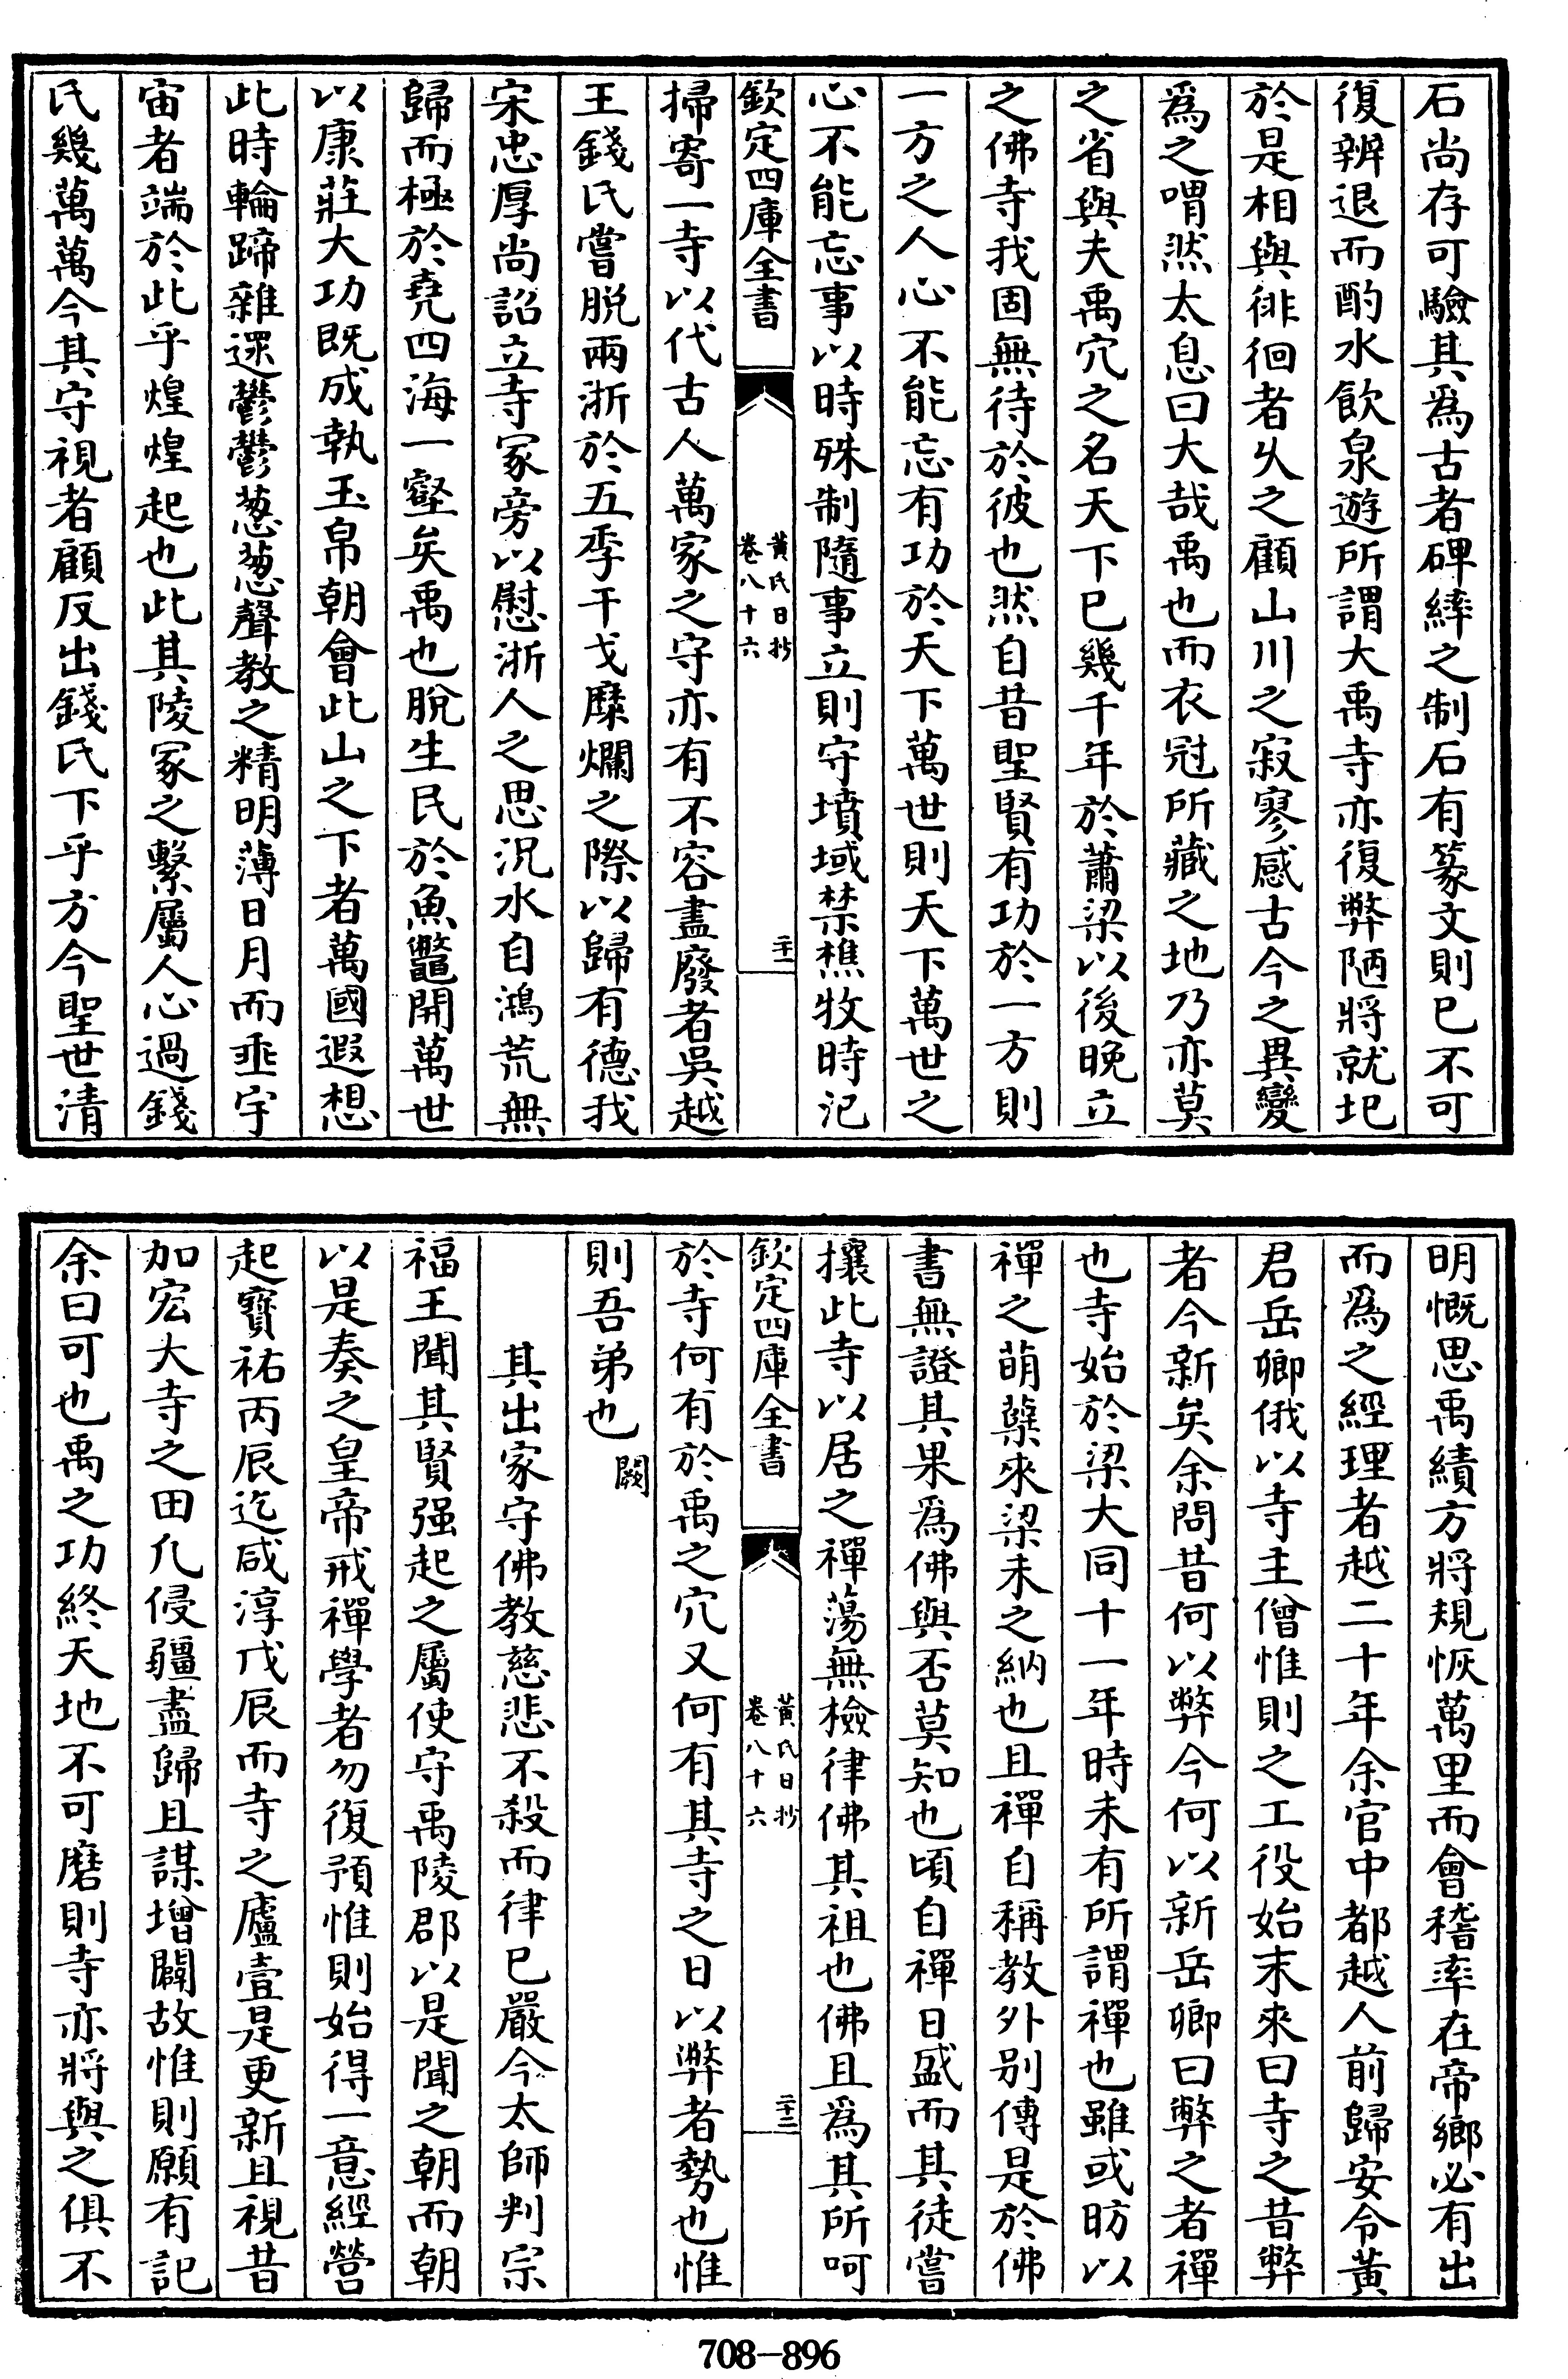 石尚存可驗其為古者碑繂之制石有篆文則已不可
復辨退而酌水飲泉遊所謂大禹寺亦復弊陋將就圯
於是相與徘徊者乆之顧山川之寂寥感古今之異變
為之喟然太息曰大哉禹也而衣冠所藏之地乃亦莫
之省與夫禹穴之名天下已幾千年於蕭梁以後晚立
之佛寺我固無待於彼也然自昔聖賢有功於一方則
一方之人心不能忘有功於天下萬世則天下萬世之
心不能忘事以時殊制隨事立則守墳域禁樵牧時汜
欽定四庫全書
黃氏日抄
卷八十六
二十一
掃寄一寺以代古人萬家之守亦有不容盡廢者吳越
王錢氏嘗脱兩浙於五季干戈糜爛之際以歸有德我
宋忠厚尚詔立寺冢旁以慰浙人之思況水自鴻荒無
歸而極於堯四海一壑矣禹也脫生民於魚鼈開萬世
以康莊大功既成執玉帛朝會此山之下者萬國遐想
此時輪蹄雜遝鬱鬱葱葱聲教之精明薄日月而亜宇
宙者端於此乎煌煌起也此其陵冢之繫屬人心過錢
氏幾萬萬今其守視者顧反出錢氏下乎方今聖世清
明慨思禹績方將規恢萬里而會稽率在帝鄉必有出
而為之經理者越二十年余官中都越人前歸安令黃
君岳卿俄以寺主僧惟則之工役始末來曰寺之昔弊
者今新矣余問昔何以弊今何以新岳卿曰弊之者禪
也寺始於梁大同十一年時未有所謂禪也雖或昉以
禪之萌蘗來梁未之納也且禪自稱教外别傳是於佛
書無證其果為佛與否莫知也頃自禪日盛而其徒嘗
攘此寺以居之禪蕩無檢律佛其祖也佛且為其所呵
欽定四庫全書
黃氏日抄
卷八十六
二十二
於寺何有於禹之穴又何有其寺之日以弊者勢也惟
則吾弟也闕
其出家守佛教慈悲不殺而律已嚴今太師判宗
福王聞其賢强起之屬使守禹陵郡以是聞之朝而朝
以是奏之皇帝戒禪學者勿復預惟則始得一意經營
起寳祐丙辰迄咸淳戊辰而寺之廬壹是更新且視昔
加宏大寺之田凡侵疆盡歸且謀增闢故惟則願有記
余曰可也禹之功終天地不可磨則寺亦將與之俱不
708-896